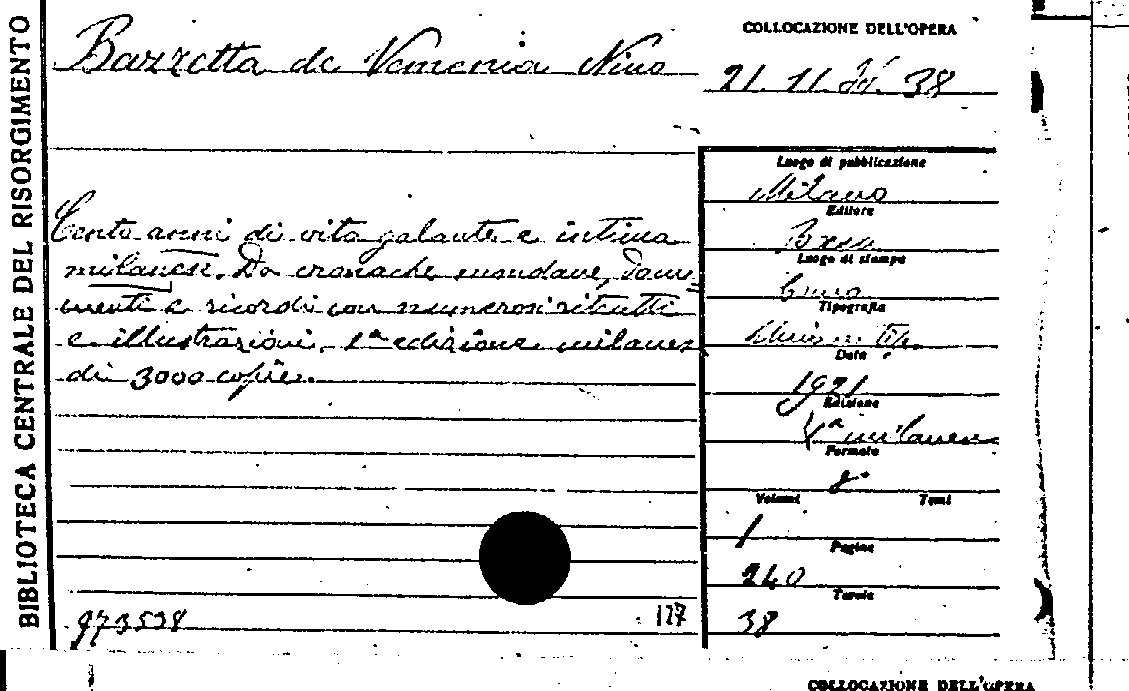 BIBLIOTECA CENTRALE DEL RISORGIMENTO
Bazzetta de Vemenia Nino
COLLOCAZIONE DELL'OPERA
21. 11. 38
Cento anni di vita galante e intima
milanese. Da cronache mondane, docu
menti e ricordi con numerosi ritratti
e illustrazioni. 1ª edizione milanese
di 3000 copie.
973538
127
Luogo di pubblicazione
Milano
Editore
Luogo di stampa
Tipografia
Data
1921
Edizione
1ª milanese
Formato
8°
Volumi Tomi
1
Pagine
240
Tavole
38
COLLOCAZIONE DELL'OPERA